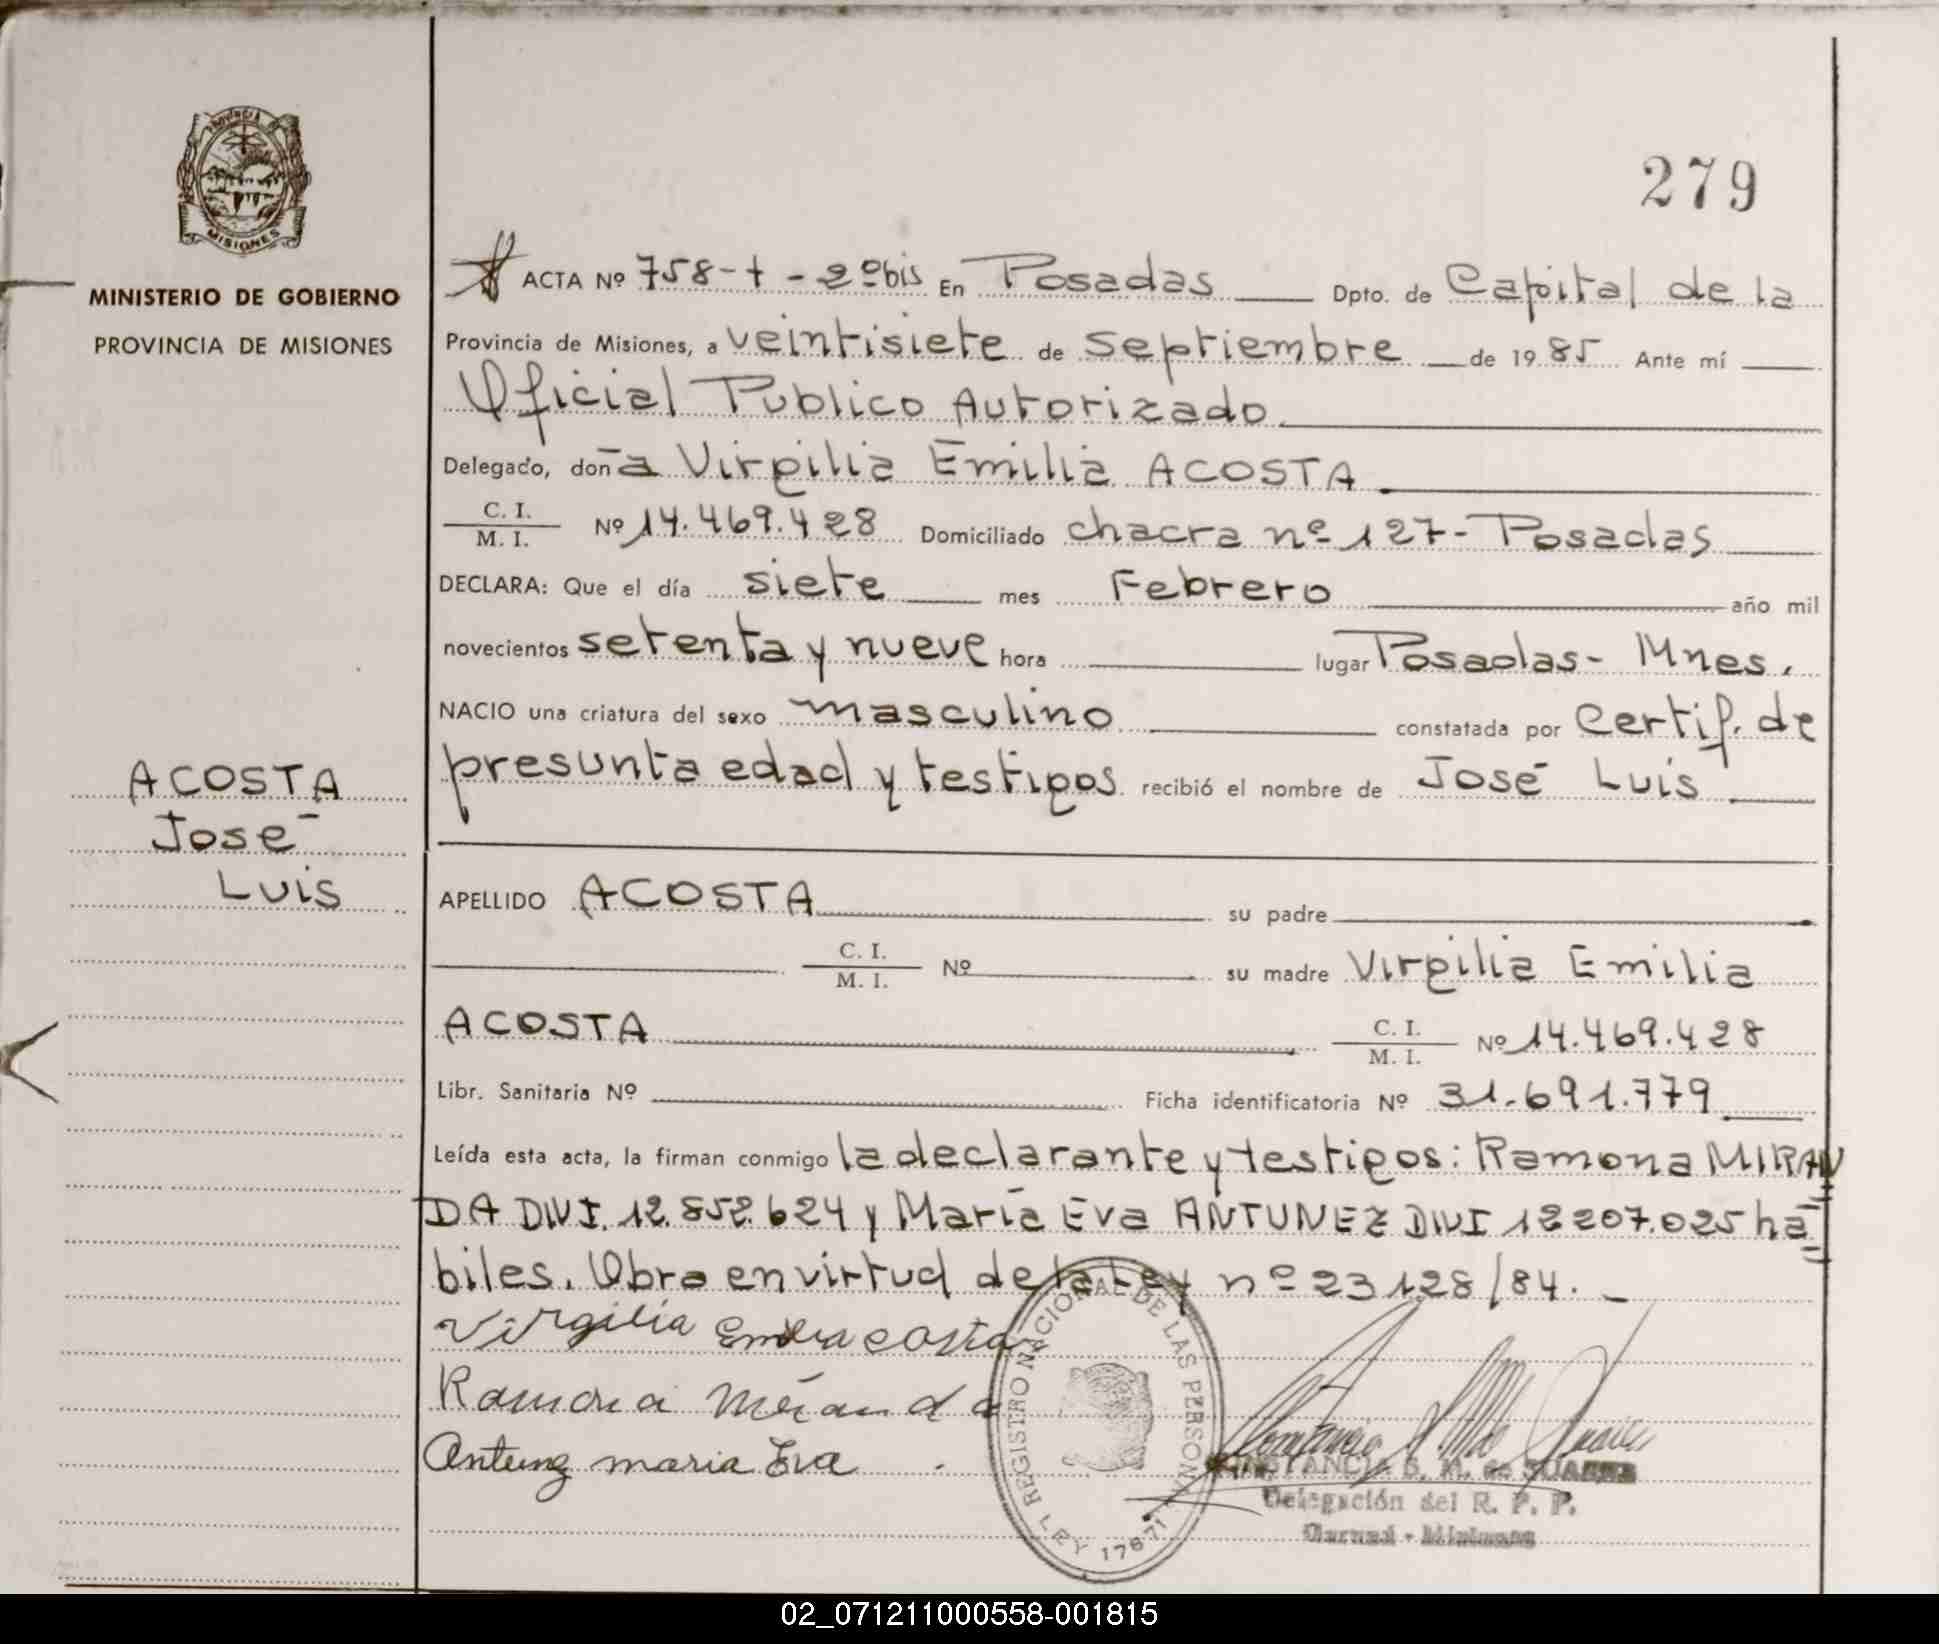 PROVINCIA DE
MISIONES
MINISTERIO DE GOBIERNO
PROVINCIA DE MISIONES
279
ACTA Nº 758-t-2ºbis En Posadas Dpto. de Capital de la
Provincia de Misiones, a veintisiete de septiembre de 1985 Ante mí
Oficial Publico Autorizado
Delegado, doña Virgilia Emilia ACOSTA
C. I.
M. I. Nº 14.469.428 Domiciliado chacra nº 127-Posadas
DECLARA: Que el día siete mes Febrero año mil
novecientos setenta y nueve hora lugar Posadas- Mnes.
NACIO una criatura del sexo masculino constatada por Certif. de
presunta edad y testigos recibió el nombre de José Luis
ACOSTA
José
Luis
APELLIDO ACOSTA su padre
C. I.
M. I. Nº su madre Virgilia Emilia
ACOSTA C. I.
M. I. Nº 14.469.428
Libr. Sanitaria Nº Ficha identificatoria Nº 31.691.779
Leída esta acta, la firman conmigo la declarante y testigos: Ramona MIRAN
DA DNI. 12.852.624 y María Eva ANTUNEZ DNI 12207.025 há
biles. Obro en virtud de la Ley nº 23128/84.-
Virgilia Emilia acosta
Ramona Miranda
Antunez maria Eva
REGISTRO NACIONAL DE LAS PERSONAS
LEY 17671
CONSTANCIA S. M. de SUAREZ
Delegación del R. P. P.
02_071211000558-001815